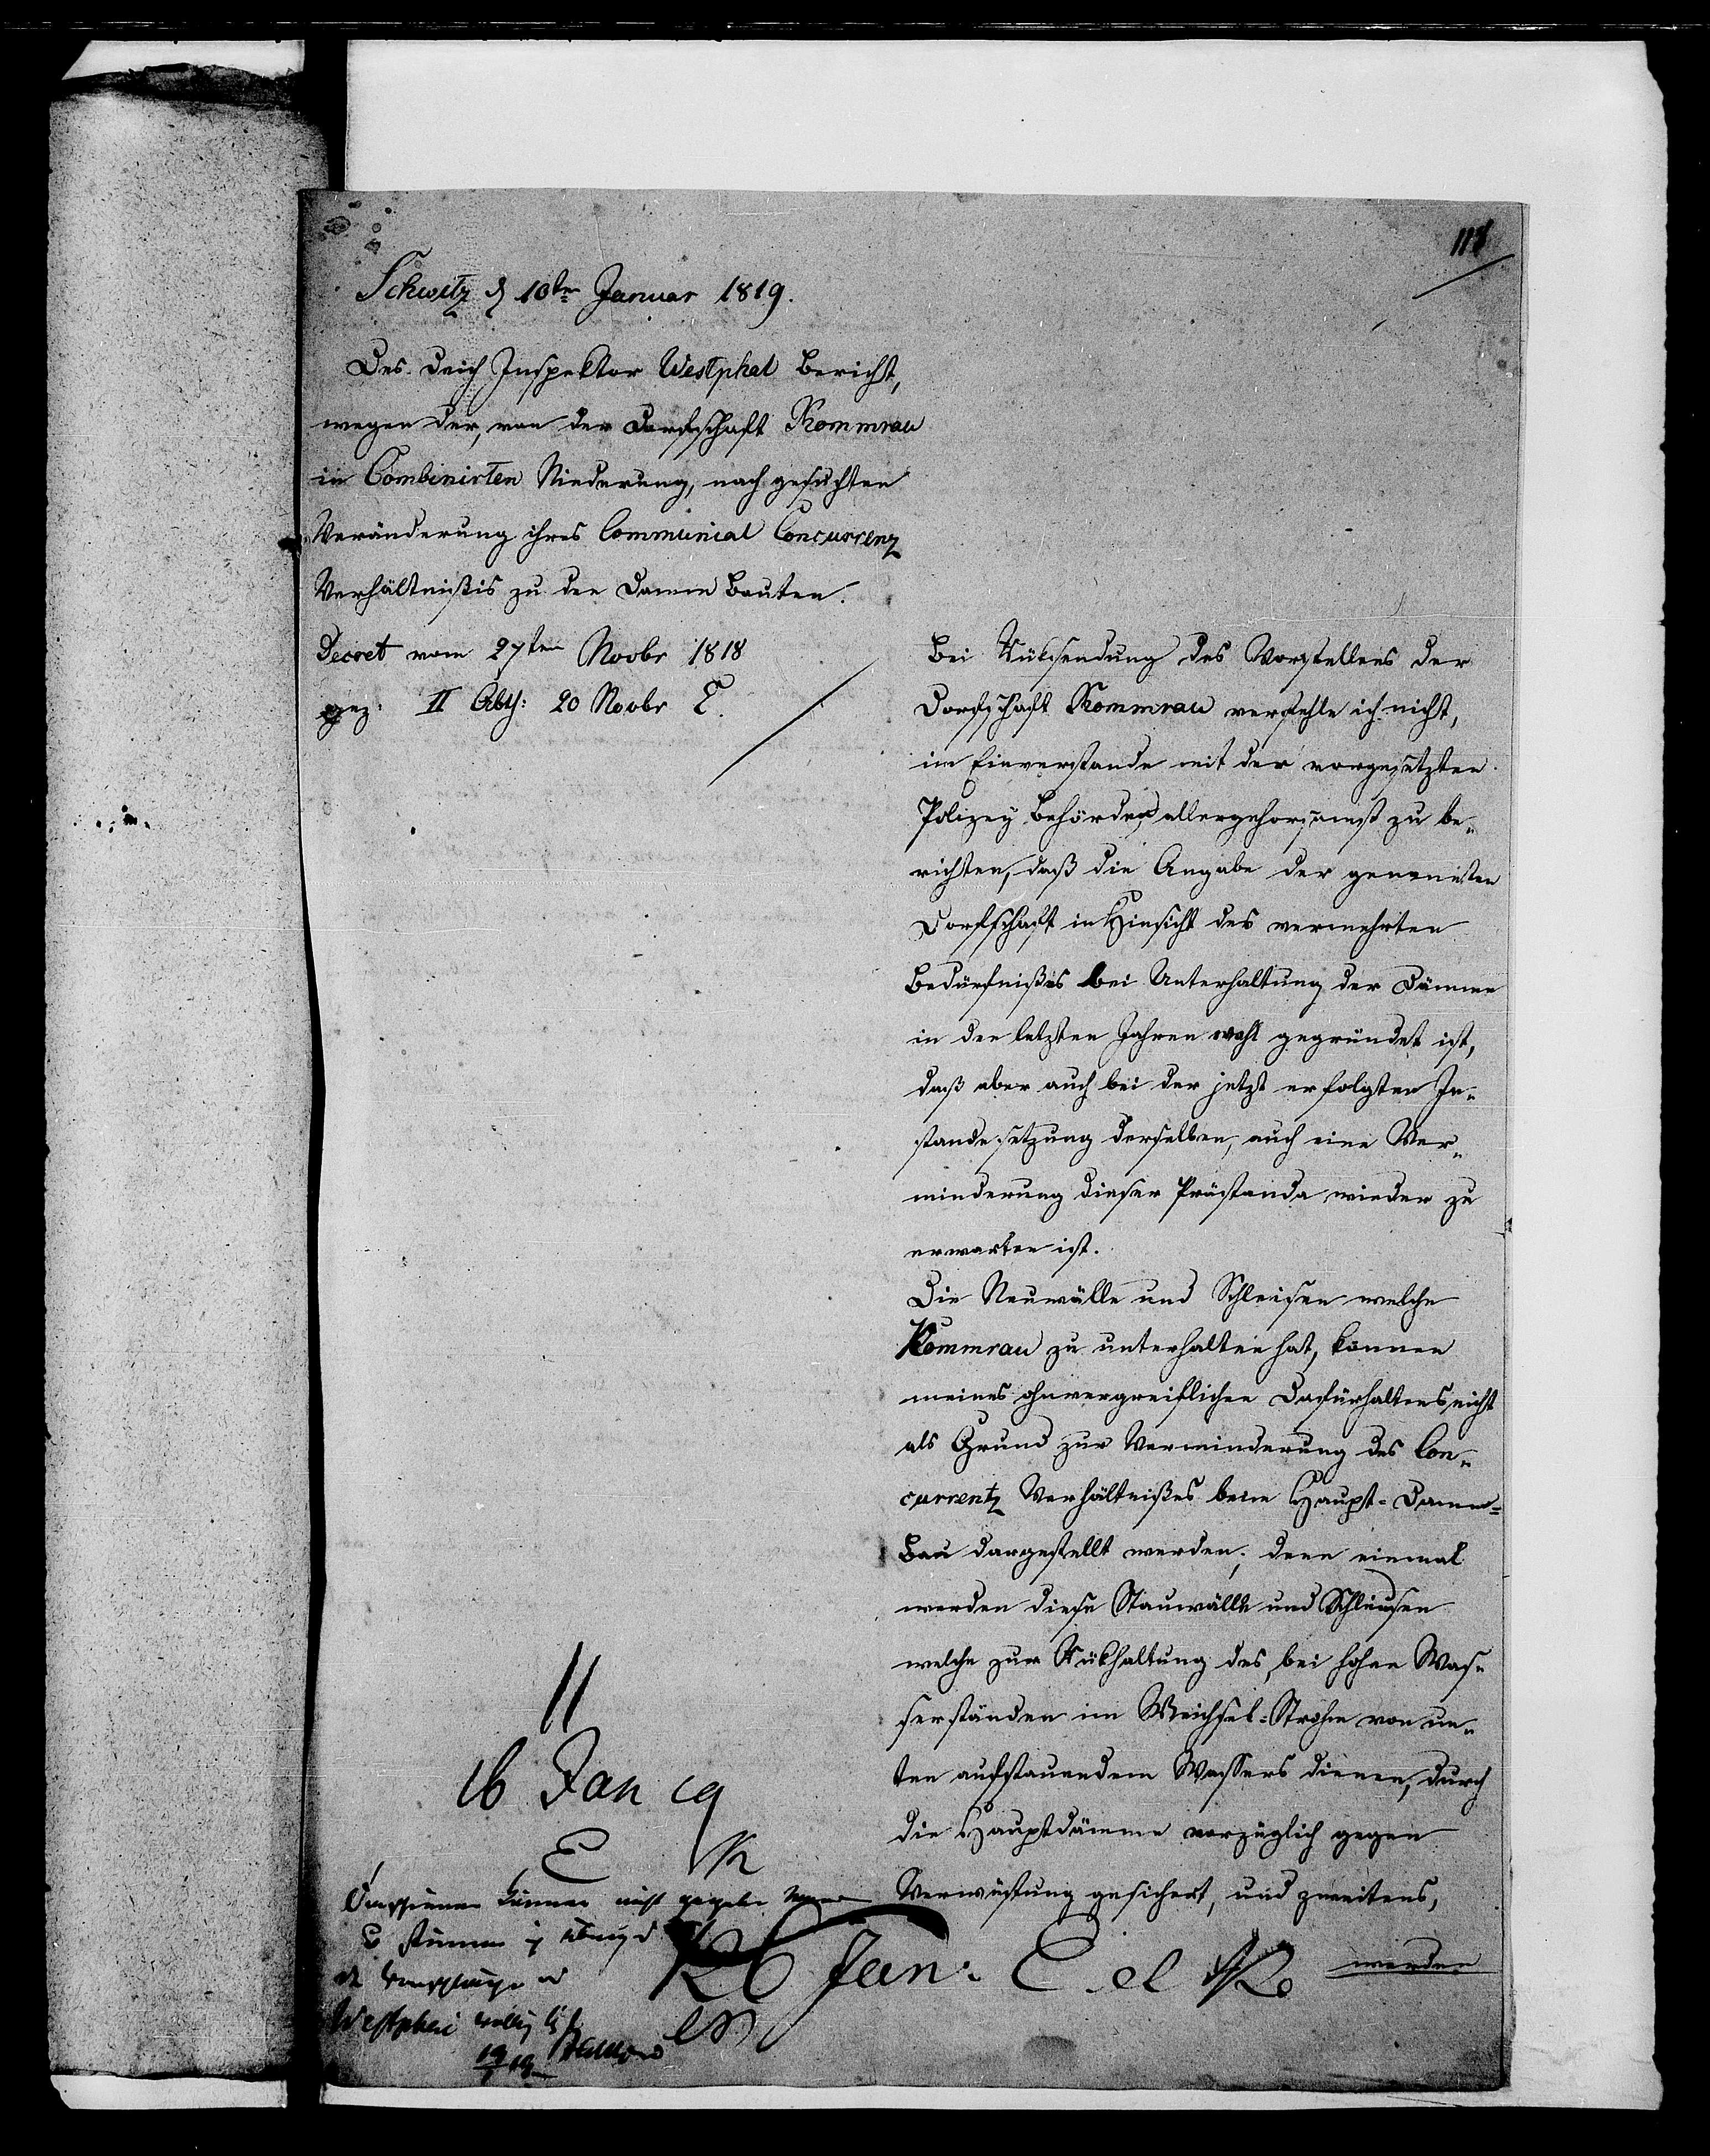 118
Schwetz d 10ten Januar 1819.
Des Deich Inspektor Westphal Bericht,
wegen der, von der Dorfschaft Kommrau
in Combinirten Niederung, nachgesuchten
Veränderung ihres Communial Concurrenz
Verhältnißes zu den Damm Bauten.
Decret vom 27ten Novbr 1818
II Abth: 20 Novbr E.
Bei Rüksendung des Vorstellens der
Dorfschaft Kommrau verfehle ich nicht,
im Einverstande mit der vorgesetzten
Polizey Behörde allergehorsamst zu be-
richten, daß die Angabe der genannten
Dorfschaft in Hinsicht des vermehrten
Bedürfnißes bei Unterhaltung der Dämme
in den letzten Jahren wohl gegründet ist,
daß aber auch bei der jetzt erfolgten In-
standesetzung derselben, auch eine Ver-
minderung dieser Prästanda wieder zu
erwarten ist.
Die Stauwälle und Schleusen welche
Kommrau zu unterhalten hat, können
meines ohnvergreiflichen Dafürhaltens nicht
als Grund zur Verminderung des Con-
currentz Verhältnißes beim Haupt-Damm-
Bau dargestellt werden; denn einmal
werden diese Stauwälle und Schleusen
welche zur Rükhaltung des, bei hohen Was-
serständen im Weichsel-Strohm von un-
ten aufstauendem Wassers dienen, durch
die Hauptdämme vorzüglich gegen
Verwüstung gesichert, und zweitens,
werden
16 Jan 19
E
können nicht gegeben
Jan: E
19